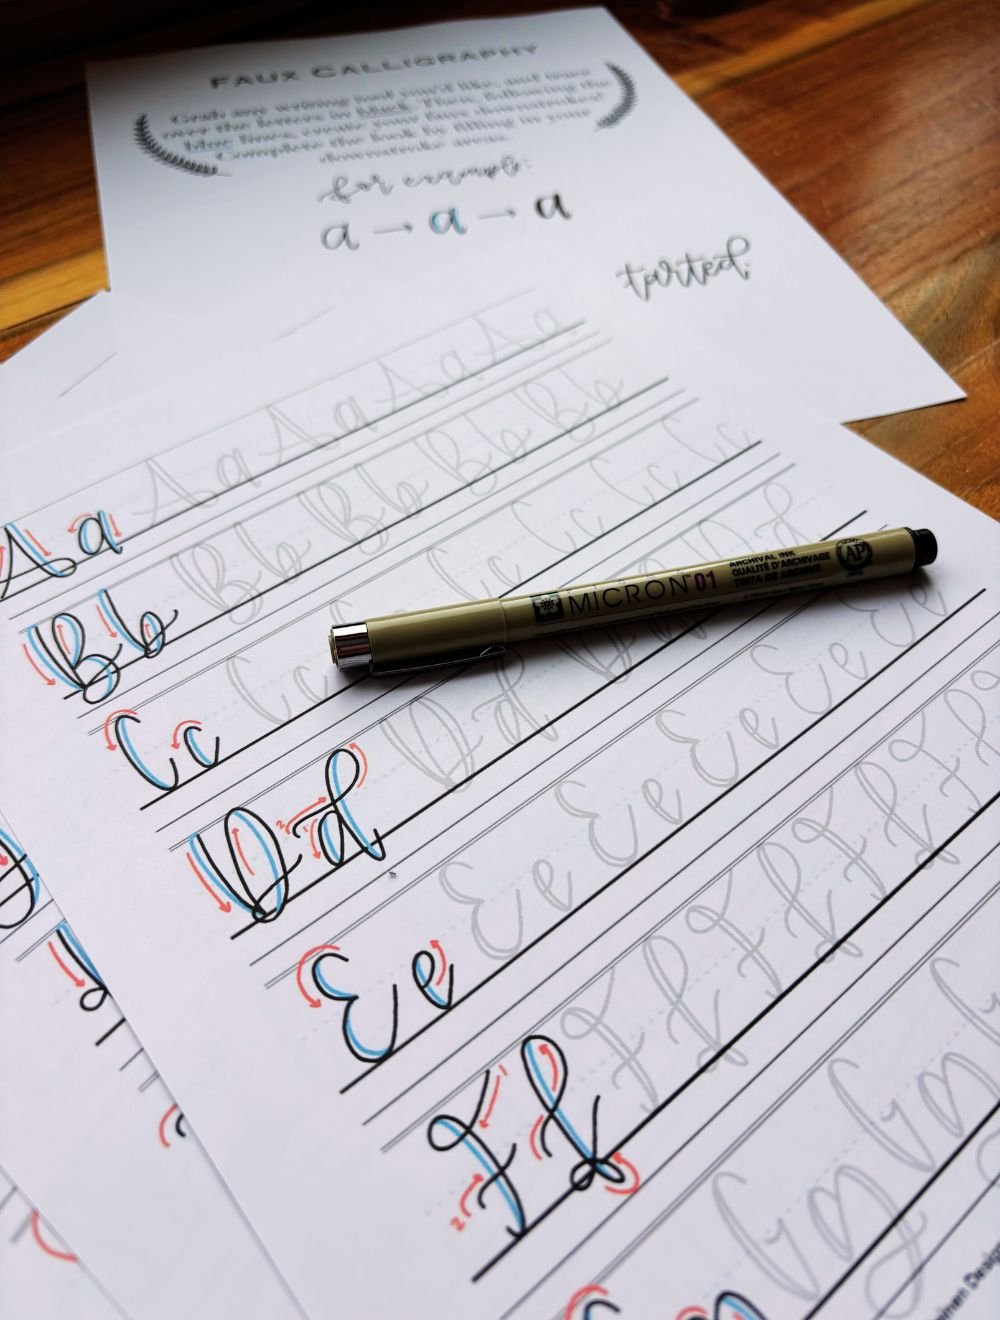 FAUX CALLIGRAPHY
Grab any writing tool you'd like, and trace
over the letters in black. Then, following the
blue lines, create your faux downstrokes.
Complete the look by filling in your
downstroke areas.
for example:
a → a → a
tarted.
Aa Aa Aa Aa
Bb Bb Bb Bb
Cc Cc Cc Cc Cc
Dd Dd Dd Dd
Ee Ee Ee Ee Ee
Ff Ff Ff Ff
Gg Gg
MICRON™ 01
ARCHIVAL INK
QUALITÉ D'ARCHIVAGE
TINTA DE ARCHIVE
AP